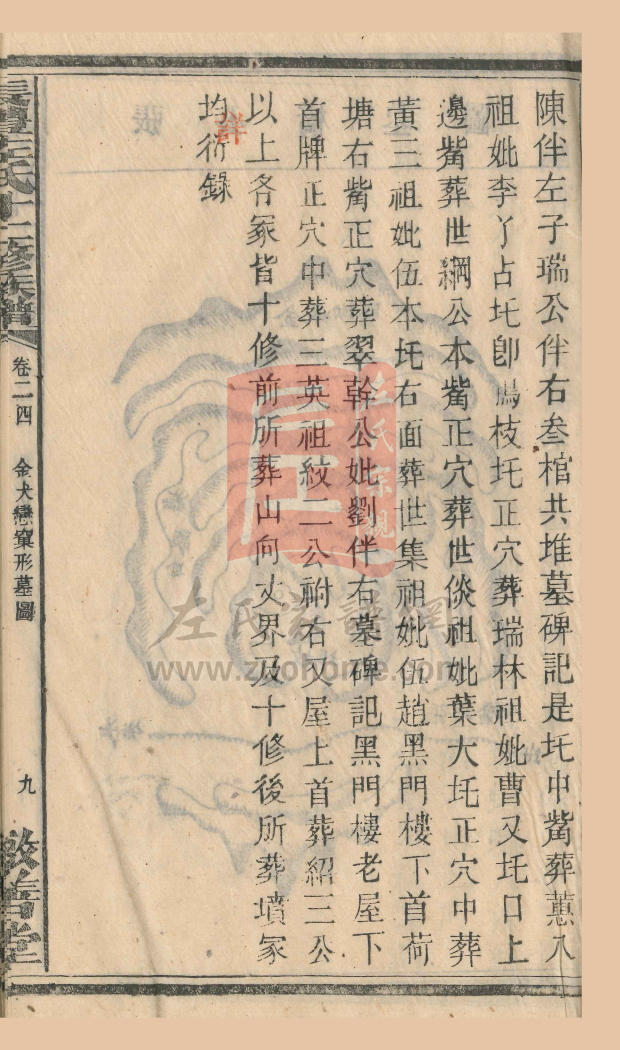 陳伴左子瑞公伴右叁棺共堆墓碑記是圫中嘴葬蕙八
祖妣李丫占圫卽鳳枝圫正穴葬瑞林祖妣曹又圫口上
邊嘴葬世綱公本嘴正穴葬世倓祖妣葉大圫正穴中葬
黃三祖妣伍本圫右面葬世集祖妣伍趙黑門樓下首荷
塘右嘴正穴葬翠幹公妣劉伴右墓碑記黑門樓老屋下
首牌正穴中葬三英祖紋二公祔右又屋上首葬紹三公
以上各冢皆十修前所葬山向丈界及十修後所葬墳冢
均衍錄
左氏十二修族譜
卷二四
金犬戀窠形墓圖
九
敦善堂
左氏宗親
左氏家譜網
www.zuohome.com